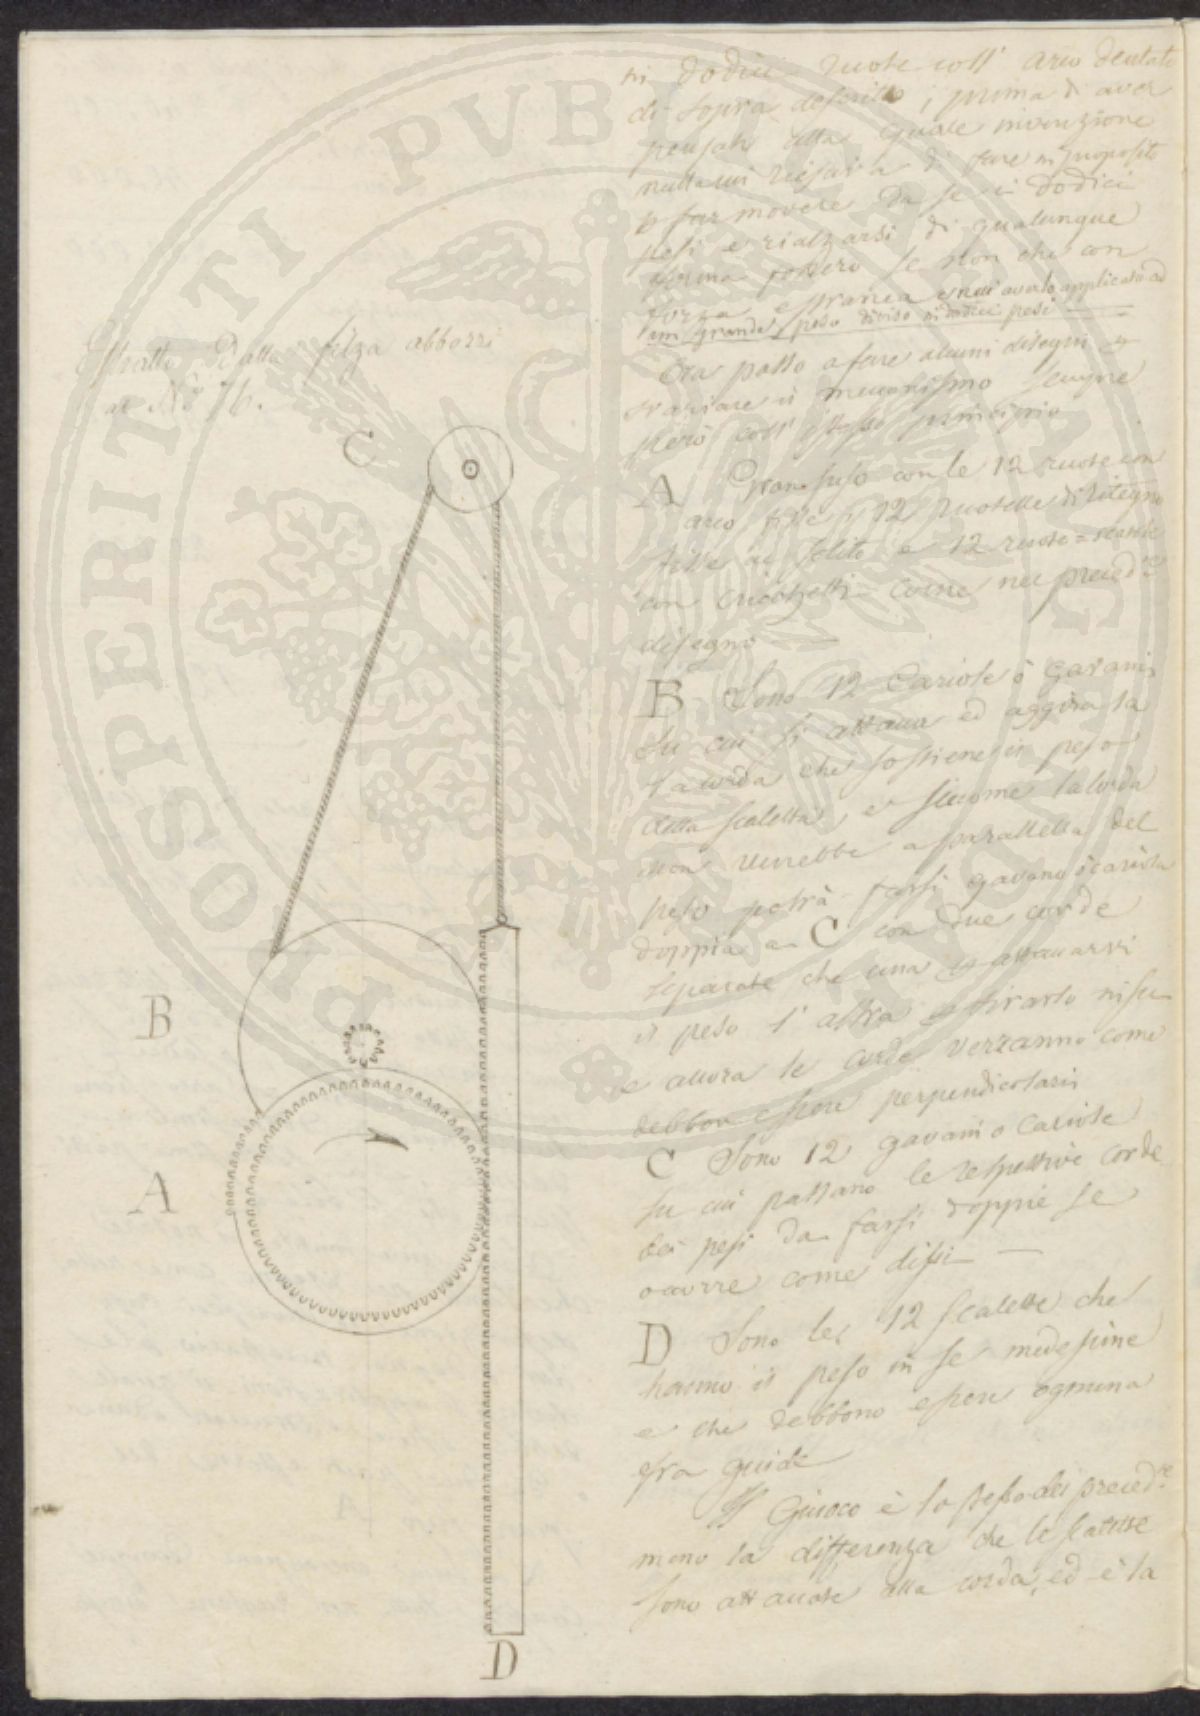 ni dodici ruote coll' arco dentato
di sopra descritto, prima d' aver
pensato alla quale invenzione
nulla mi riesciva di fare in proposito
p far movere da se i dodici
pesi e rialzarsi di qualunque
forma fossero se non che con
forza estranea
un grande peso diviso in dodici pesi
Ora passo a fare alcuni disegni p
variare il meccanismo sempre
però coll' istesso principio
Estratto dalla filza abbozzi
al N.º 76.
A Gran peso con le 12 ruote con
arco fisse p 12 ruotelle di ritegno
fisse al solito e 12 ruote scatole
con cricchetti come nel preced.te
disegno
B Sono 12 Cariole ò gavani
su cui si attacca ed aggira la
corda che sostiene il peso
della scaletta, e siccome la corda
non verrebbe a parallella del
peso potrà farsi gavano ò cariola
doppia a C con due corde
separate che una p attaccarvi
il peso l' altra p tirarlo in su
e allora le corde verranno come
debbon essere perpendicolari
C Sono 12 gavani o Cariole
su cui passano le respettive corde
dei pesi da farsi doppie se
occorre come dissi
D Sono le 12 scalette che
hanno il peso in se medesime
e che debbono essere ognuna
fra guide
Il Giuoco è lo stesso dei preced.ti
meno la differenza che le scalette
sono attaccate alla corda, ed è la
C
B
A
D
PROSPERITATI PVBLICAE